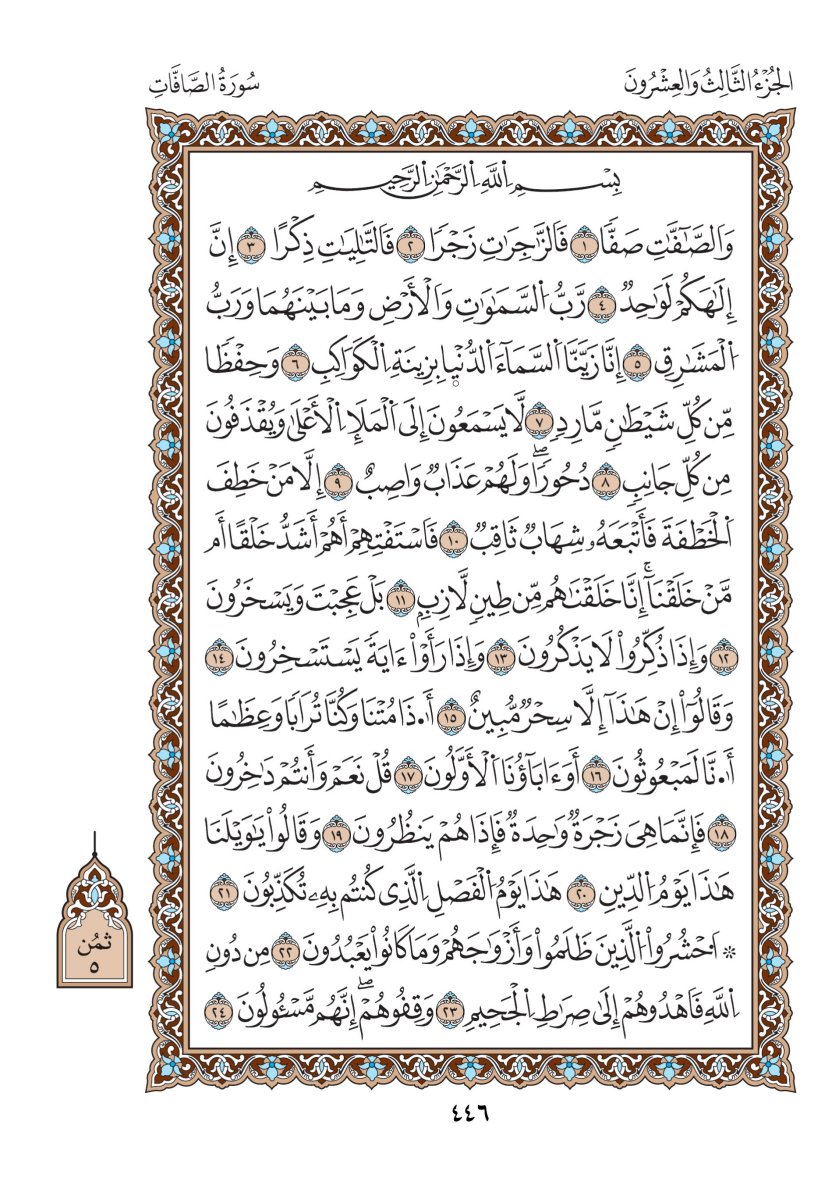 الجُزْءُ الثَّالِثُ وَالعِشْرُونَ
سُورَةُ الصَّافَّاتِ
بِسْمِ اِللَّهِ اِلرَّحْمَٰنِ اِلرَّحِيمِ
وَالصَّٰٓفَّٰتِ صَفّٗا ١ فَالزَّٰجِرَٰتِ زَجْرٗا ٢ فَالتَّٰلِيَٰتِ ذِكْرًا ٣ إِنَّ
إِلَٰهَكُمْ لَوَٰحِدٞ ٤ رَّبُّ اُلسَّمَٰوَٰتِ وَالْأَرْضِ وَمَا بَيْنَهُمَا وَرَبُّ
اُلْمَشَٰرِقِ ٥ إِنَّا زَيَّنَّا اَلسَّمَآءَ اَلدُّنْيا بِزِينَةِ اِلْكَوَاكِبِ ٦ وَحِفْظٗا
مِّن كُلِّ شَيْطَٰنٖ مَّارِدٖ ٧ لَّا يَسْمَعُونَ إِلَى اَلْمَلَإِ اِلْأَعْلَىٰ وَيُقْذَفُونَ
مِن كُلِّ جَانِبٖ ٨ دُحُورٗاۖ وَلَهُمْ عَذَابٞ وَاصِبٌ ٩ إِلَّا مَنْ خَطِفَ
اَلْخَطْفَةَ فَأَتْبَعَهُۥ شِهَابٞ ثَاقِبٞ ١٠ فَاسْتَفْتِهِمْ أَهُمْ أَشَدُّ خَلْقًا أَم
مَّنْ خَلَقْنَآۚ إِنَّا خَلَقْنَٰهُم مِّن طِينٖ لَّازِبِۭ ١١ بَلْ عَجِبْتَ وَيَسْخَرُونَ
١٢ وَإِذَا ذُكِّرُواْ لَا يَذْكُرُونَ ١٣ وَإِذَا رَأَوْاْ ءَايَةٗ يَسْتَسْخِرُونَ ١٤
وَقَالُوٓاْ إِنْ هَٰذَآ إِلَّا سِحْرٞ مُّبِينٌ ١٥ أَ۟ذَا مُتْنَا وَكُنَّا تُرَابٗا وَعِظَٰمًا
أَ۟نَّا لَمَبْعُوثُونَ ١٦ أَوَءَابَآؤُنَا اَلْأَوَّلُونَ ١٧ قُلْ نَعَمْ وَأَنتُمْ دَٰخِرُونَ
١٨ فَإِنَّمَا هِيَ زَجْرَةٞ وَٰحِدَةٞ فَإِذَا هُمْ يَنظُرُونَ ١٩ وَقَالُواْ يَٰوَيْلَنَا
هَٰذَا يَوْمُ اُلدِّينِ ٢٠ هَٰذَا يَوْمُ اُلْفَصْلِ اِلَّذِي كُنتُم بِهِۦ تُكَذِّبُونَ ٢١
* اَحْشُرُواْ اُلَّذِينَ ظَلَمُواْ وَأَزْوَٰجَهُمْ وَمَا كَانُواْ يَعْبُدُونَ ٢٢ مِن دُونِ
اِللَّهِ فَاهْدُوهُمْ إِلَىٰ صِرَٰطِ اِلْجَحِيمِ ٢٣ وَقِفُوهُمْۖ إِنَّهُم مَّسْـُٔولُونَ ٢٤
ثمُن
٥
٤٤٦